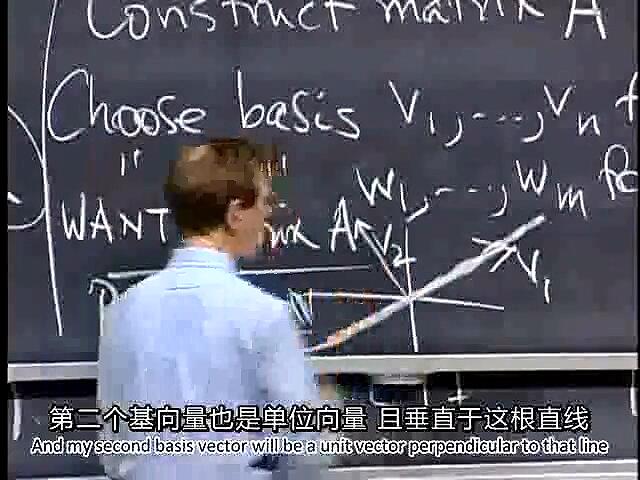 Construct matrix A
Choose basis v1, ..., vn
" "
w1, ..., wm
WANT A
v2
v1
第二个基向量也是单位向量 且垂直于这根直线
And my second basis vector will be a unit vector perpendicular to that line